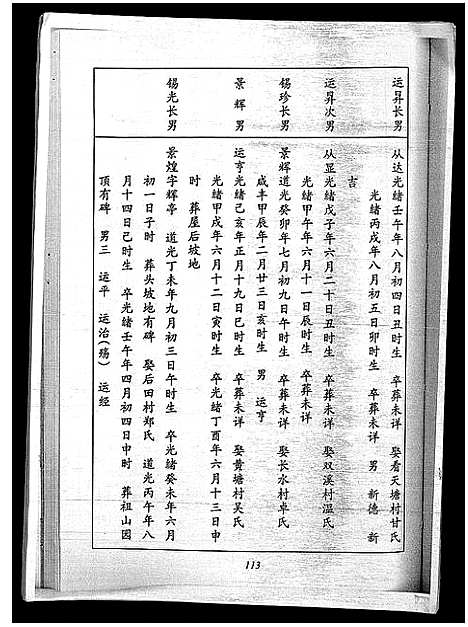 运昇长男
从达光绪壬午年八月初四日丑时生 卒葬未详 娶看天塘村甘氏
光绪丙戌年八月初五日卯时生 卒葬未详 男 新德 新
吉
运昇次男
从显光绪戊子年六月二十日丑时生 卒葬未详 娶双溪村温氏
光绪甲午年六月十一日辰时生 卒葬未详
锡珍长男
景辉道光癸卯年七月初九日午时生 卒葬未详 娶长水村卓氏
咸丰甲辰年二月廿三日亥时生 男 运亨
景辉男
运亨光绪己亥年正月十九日巳时生 卒葬未详 娶黄塘村吴氏
光绪甲戌年六月十二日寅时生 卒光绪丁酉年六月十三日申
时 葬屋后坡地
锡光长男
景煌字辉亭 道光丁未年九月初三日午时生 卒光绪癸未年六月
初一日子时 葬头坡地有碑 娶后田村郑氏 道光丙午年八
月十四日巳时生 卒光绪壬午年四月初四日申时 葬祖山园
顶有碑 男三 运平 运治(殇) 运经
113